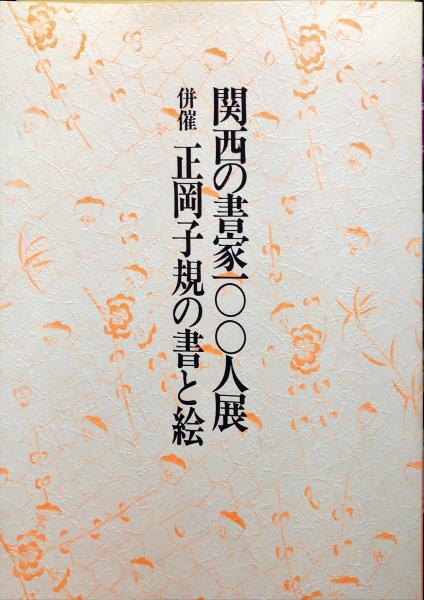 関西の書家一〇〇人展
併催 正岡子規の書と絵